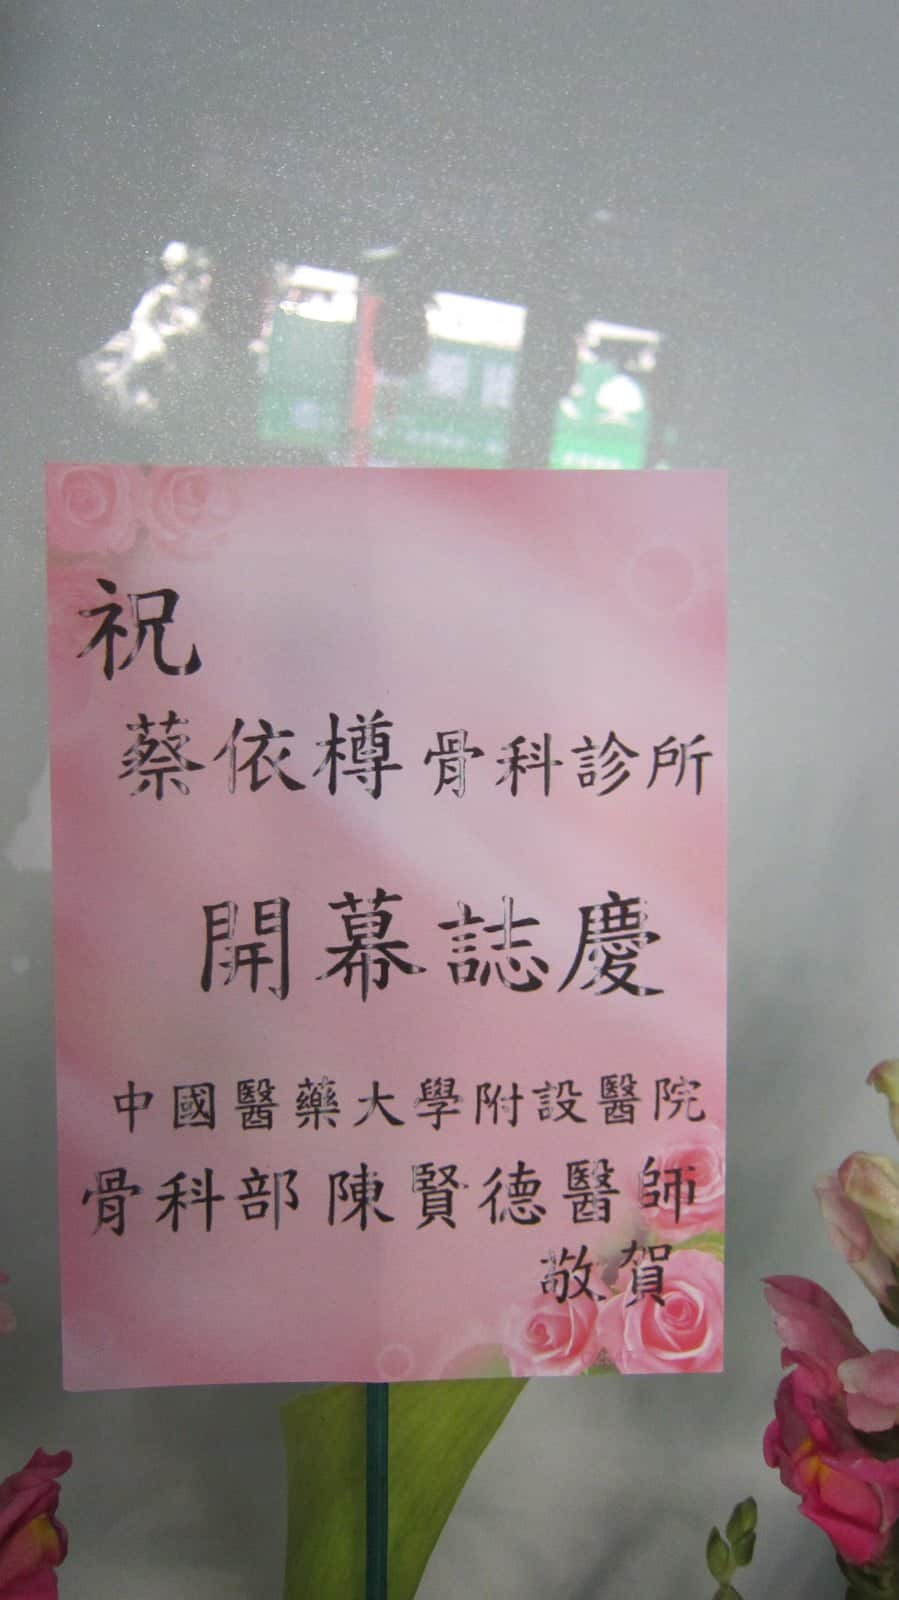 祝
蔡依樽骨科診所
開幕誌慶
中國醫藥大學附設醫院
骨科部陳賢德醫師
敬賀